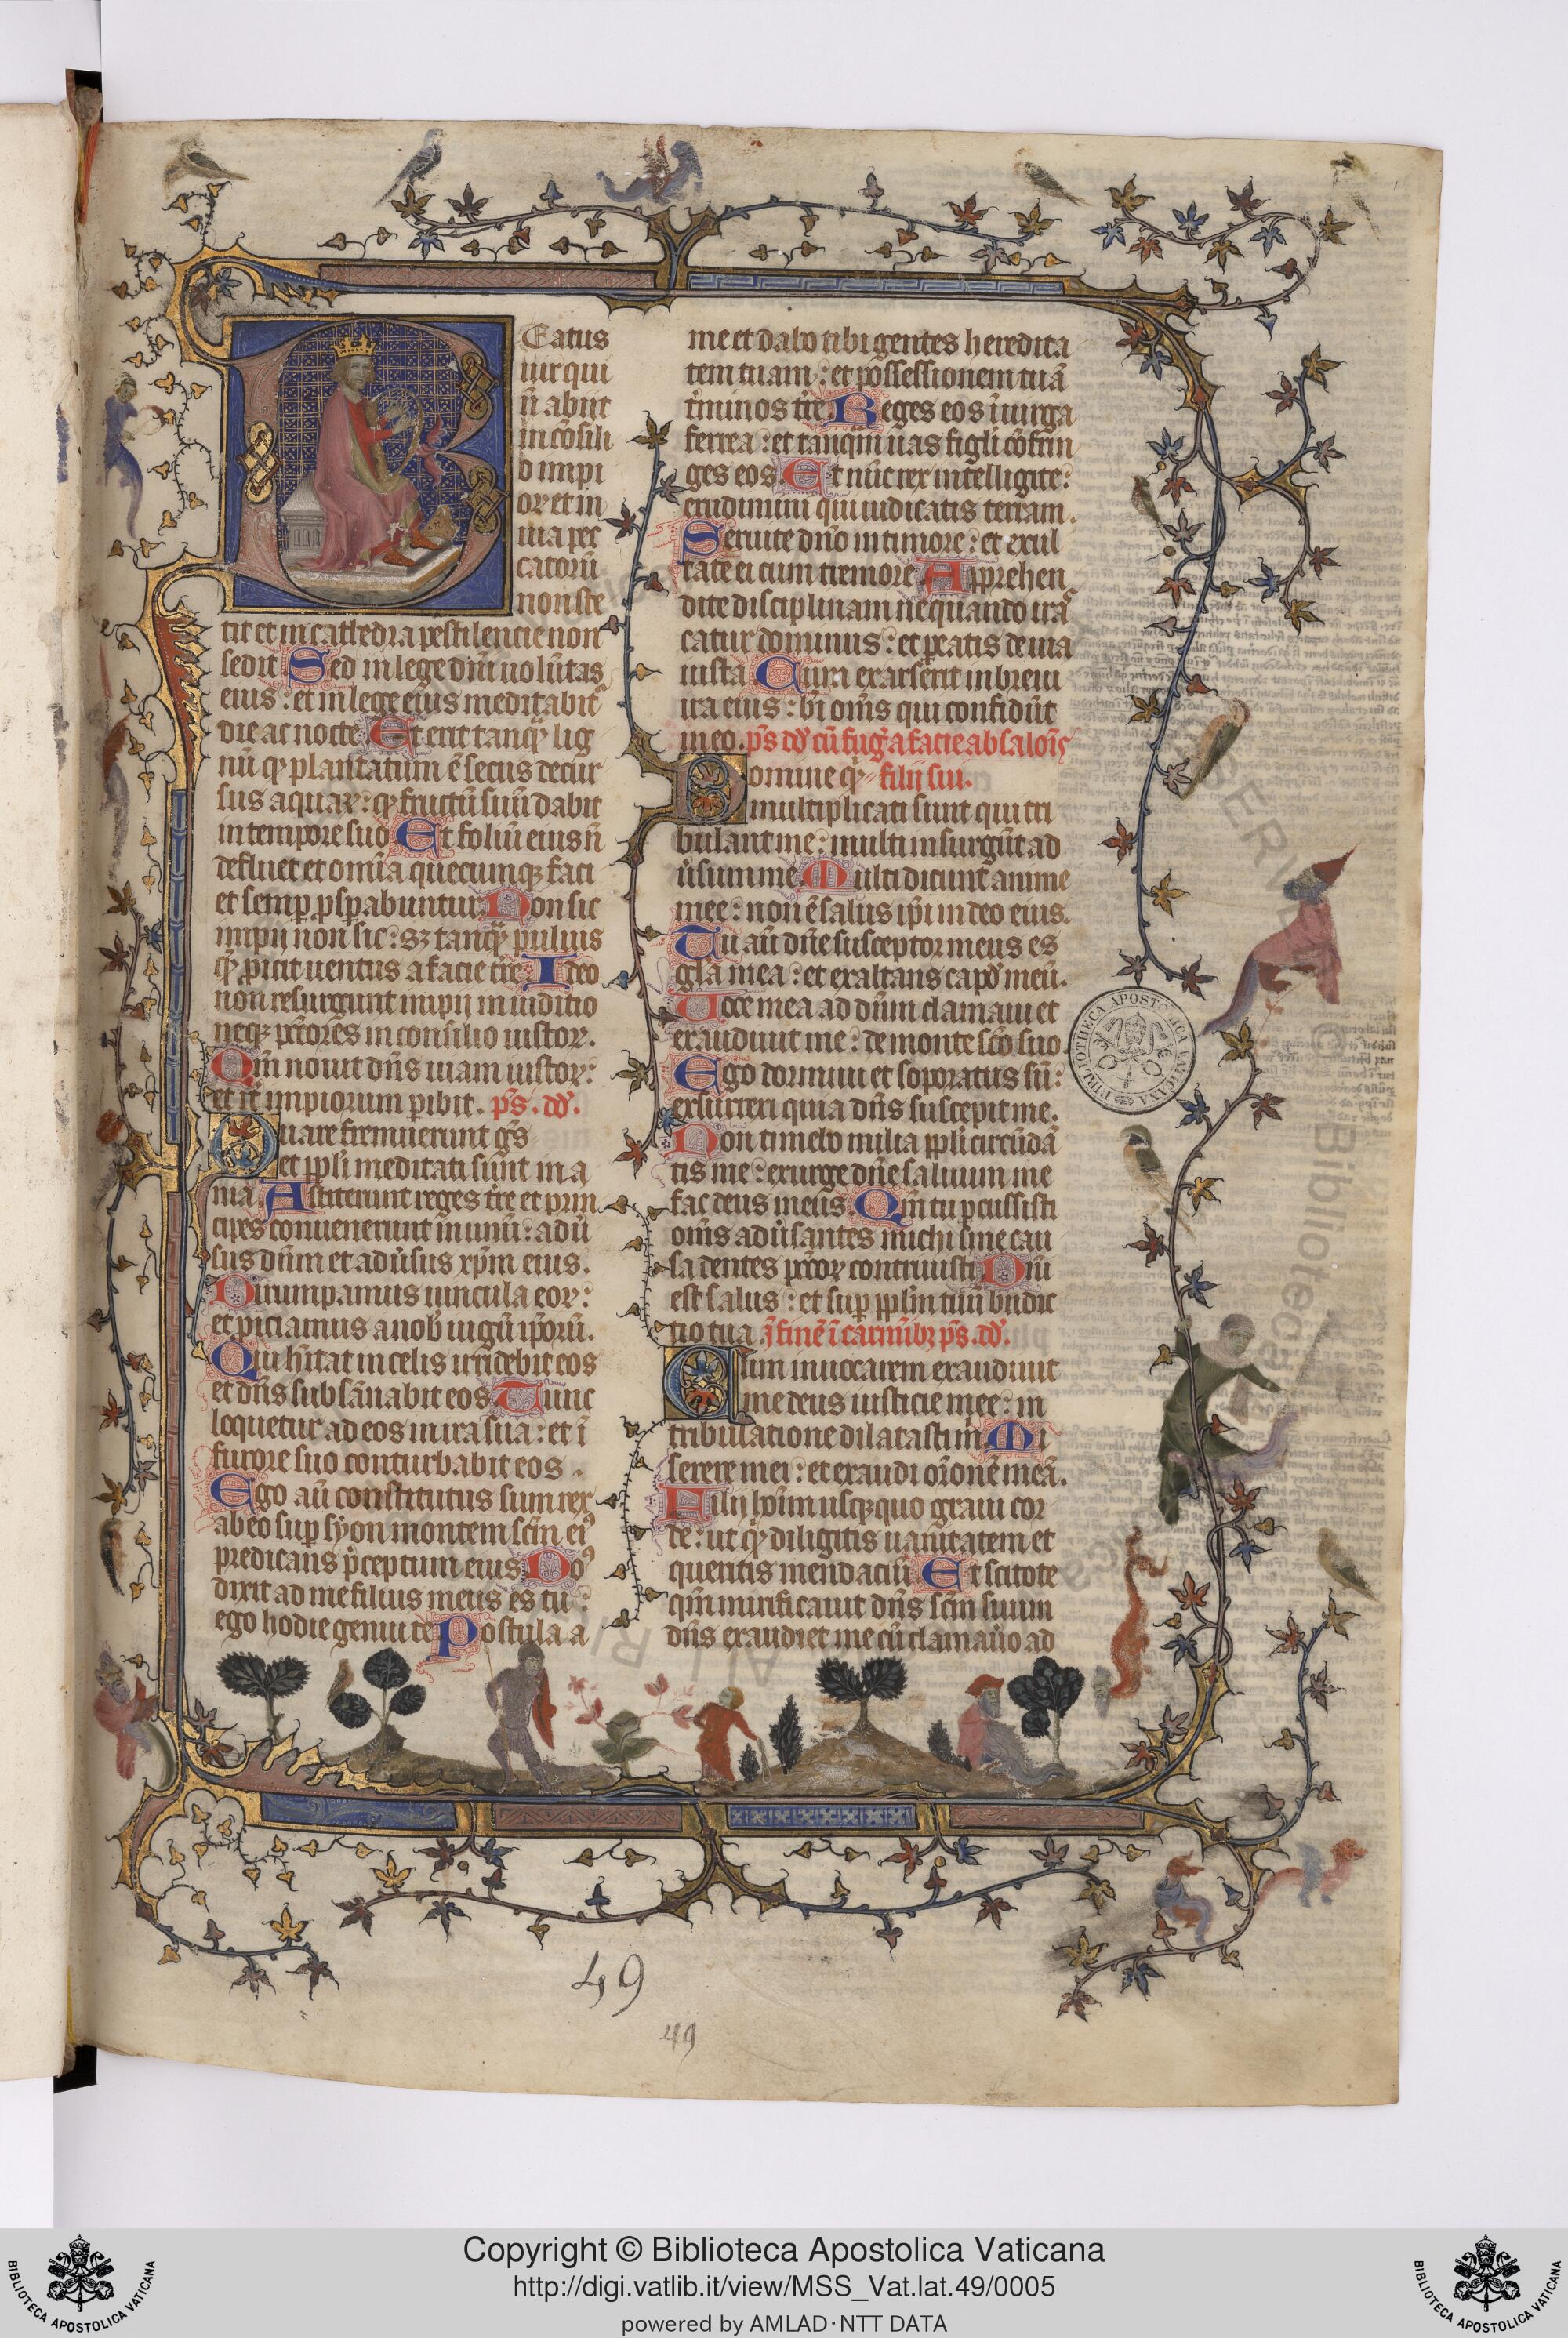 Beatus
uir qui
n̄ abiit
in cōsili
o impi
oꝝ et in
uia pec
catorū
non ste
tit et in cathedra pestilencie non
sedit Sed in lege dn̄i uolūtas
eius : et in lege eius meditabit᷑
die ac nocte Et erit tanqᷓ lig
nū qꝫ plantatum ē secus decur
sus aquaꝝ : qꝫ fructū suū dabit
in tempore suo Et foliū eius n̄
defluet et om̄ia quecumqꝫ faci
et semꝑ ꝓsꝑabuntur Non sic
impij non sic : sꝫ tanqᷓ puluis
qᷓ ꝓicit uentus a facie tr̄e Ideo
non resurgunt impij in iuditio
neqꝫ pc̄cores in consilio iustoꝝ.
Qm̄ nouit dn̄s uiam iustoꝝ :
et it̄ impiorum ꝑibit . ps̄ . dd̄ .
Quare fremuerunt gn̄s
et ppl̄i meditati sunt in a
nia Astiterunt reges tr̄e et prin
cipes conuenerunt in unū : adū
sus dn̄m et adūsus xp̄m eius .
Dirumpamus uincula eoꝝ :
et ꝓiciamus a nob̄ iugū ip̄orū .
Qui hītat in celis irridebit eos
et dn̄s subsānabit eos Tunc
loquetur ad eos in ira sua : et ī
furore suo conturbabit eos .
Ego aū constitutus sum rex
ab eo suꝑ syon montem scm̄ eiꝰ
predicans p̄ceptum eius Dn̄s
dixit ad me filius meus es tu :
ego hodie genui te Postula a
me et dabo tibi gentes heredita
tem tuam : et possessionem tuā
t̄minos tr̄e Reges eos ī uirga
ferrea : et tanqᷓm uas figli cōfrin
ges eos Et nūc rex intelligite :
erudimini qui iudicatis terram .
Seruite dn̄o in timore : et exul
tate ei cum tremore Apprehen
dite disciplinam nequando iras
catur dominus : et ꝑeatis de uia
iusta Cum exarserit in breui
ira eius : bī om̄s qui confidūt
in eo . ps̄ dd̄ cū fugᷓ a facie absaloīs
Domine qᷓ filij sui .
multiplicati sunt qui tri
bulant me : multi insurgūt ad
ūsum me Multi dicunt anime
mee : non ē salus ip̄i in deo eius .
Tu aū dn̄e susceptor meus es
gl̄a mea : et exaltans capd̄ meū .
Uoce mea ad dn̄m clamaui et
exaudiuit me : de monte sc̄o suo
Ego dormiui et soporatus sū :
exsurrexi quia dn̄s suscepit me .
Non timebo milia ppl̄i circūdā
tis me : exurge dn̄e saluum me
fac deus meus Qm̄ tu ꝑcussisti
om̄s adūsantes michi sine cau
sa dentes pc̄coꝝ contriuisti Dn̄i
est salus : et suꝑ ppl̄m tuū bn̄dic
tio tua . ī finē ī carminibꝫ ps̄ . dd̄ .
Cum inuocarem exaudiuit
me deus iusticie mee : in
tribulatione dilatasti m̄ Mi
serere mei : et exaudi or̄onē meā .
Filij hoīm usqꝫquo graui cor
de : ut qᷓ diligitis uanitatem et
queritis mendaciū Et scitote
qm̄ mirificauit dn̄s scm̄ suum
dn̄s exaudiet me cū clamaūo ad
BIBLIOTHECA APOSTOLICA VATICANA
49
49
Copyright © Biblioteca Apostolica Vaticana
http://digi.vatlib.it/view/MSS_Vat.lat.49/0005
powered by AMLAD·NTT DATA
BIBLIOTECA APOSTOLICA VATICANA
BIBLIOTECA APOSTOLICA VATICANA